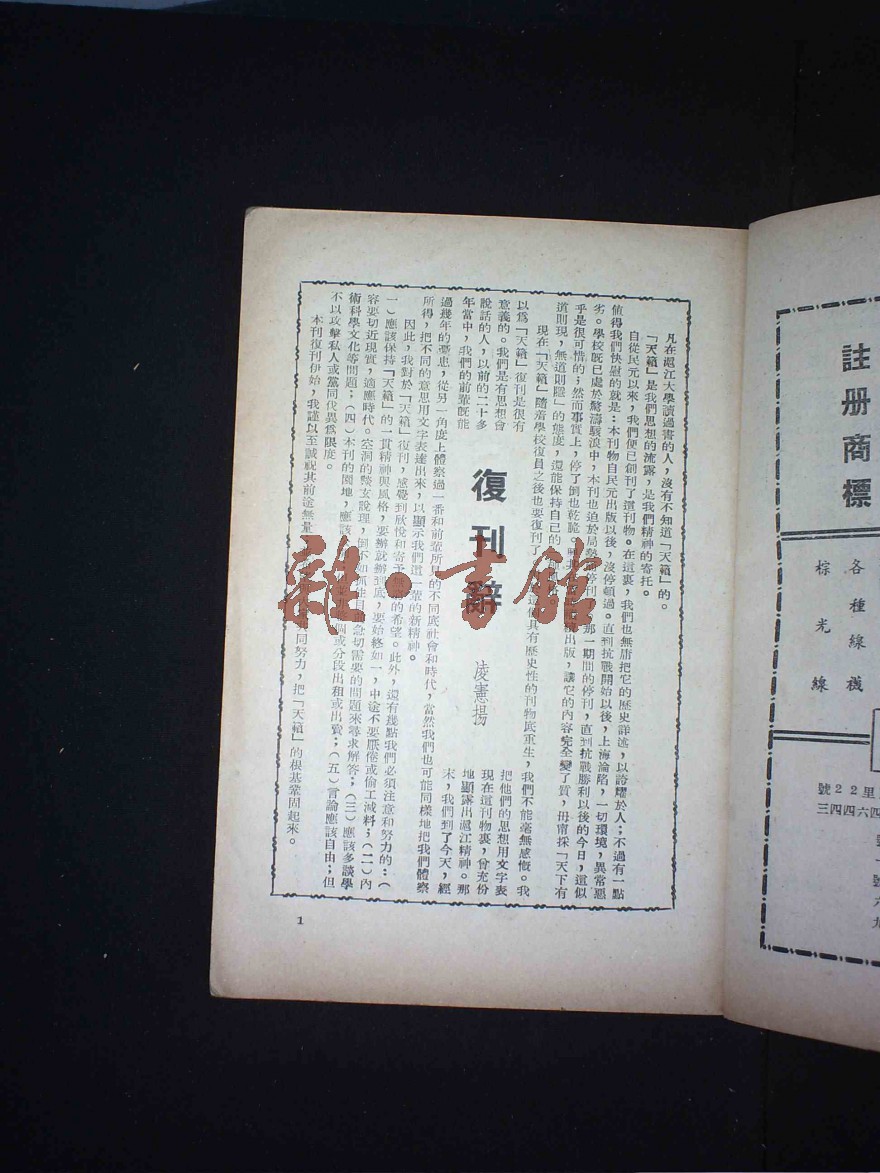 復刊辭
凌憲揚
凡在滬江大學讀過書的人，沒有不知道「天籟」的。
「天籟」是我們思想的流露，是我們精神的寄托。
自從民元以來，我們便已創刊了這刊物。在這裏，我們也無庸把它的歷史詳述，以誇耀於人；不過有一點
値得我們快慰的就是：本刊物自民元出版以後，沒停頓過。直到抗戰開始以後，上海淪陷，一切環境，異常惡
劣。學校旣已處於驚濤駭浪中，本刊也迫於局勢
停刊
那一期間的停刊，直到抗戰勝利以後的今日，這似
乎是很可惜的；然而事實上，停了倒也乾脆。
出版，讓它的內容完全變了質，毋甯採「天下有
道則現，無道則隱」的態度，還能保持自己的
現在「天籟」隨着學校復員之後也要復刊了
具有歷史性的刊物底重生，我們不能毫無感慨。我
以爲「天籟」復刊是很有
意義的。我們是有思想會
說話的人，以前的二十多
年當中，我們的前輩旣能
把他們的思想用文字表
現在這刊物裏，曾充份
地顯露出滬江精神。那
末，我們到了今天，經
過幾年的憂患，從另一角度上體察過一番和前輩所見的不同底社會和時代，當然我們也可能同樣地把我們體察
所得，把不同的意思用文字表達出來，以顯示我們這一輩的新精神。
因此，我對於「天籟」復刊，感覺到欣悅和寄予無
的希望。此外，還有幾點我們必須注意和努力的：（
一）應該保持「天籟」的一貫精神與風格，要辦就辦到底，要始終如一，中途不要厭倦或偷工減料；（二）內
容要切近現實，適應時代。空洞的
說理，倒不如抓住目
急切需要的問題來尋求解答；（三）應該多談學
術科學文化等問題；（四）本刊的園地，應該
個或分段出租或出賣；（五）言論應該自由；但
不以攻擊私人或黨同伐異爲限度。
本刊復刊伊始，我謹以至誠祝其前途無量
同努力，把「天籟」的根基鞏固起來。
1
註册商標
各種線襪
棕光線
里22號
四六四四三
雜·書館